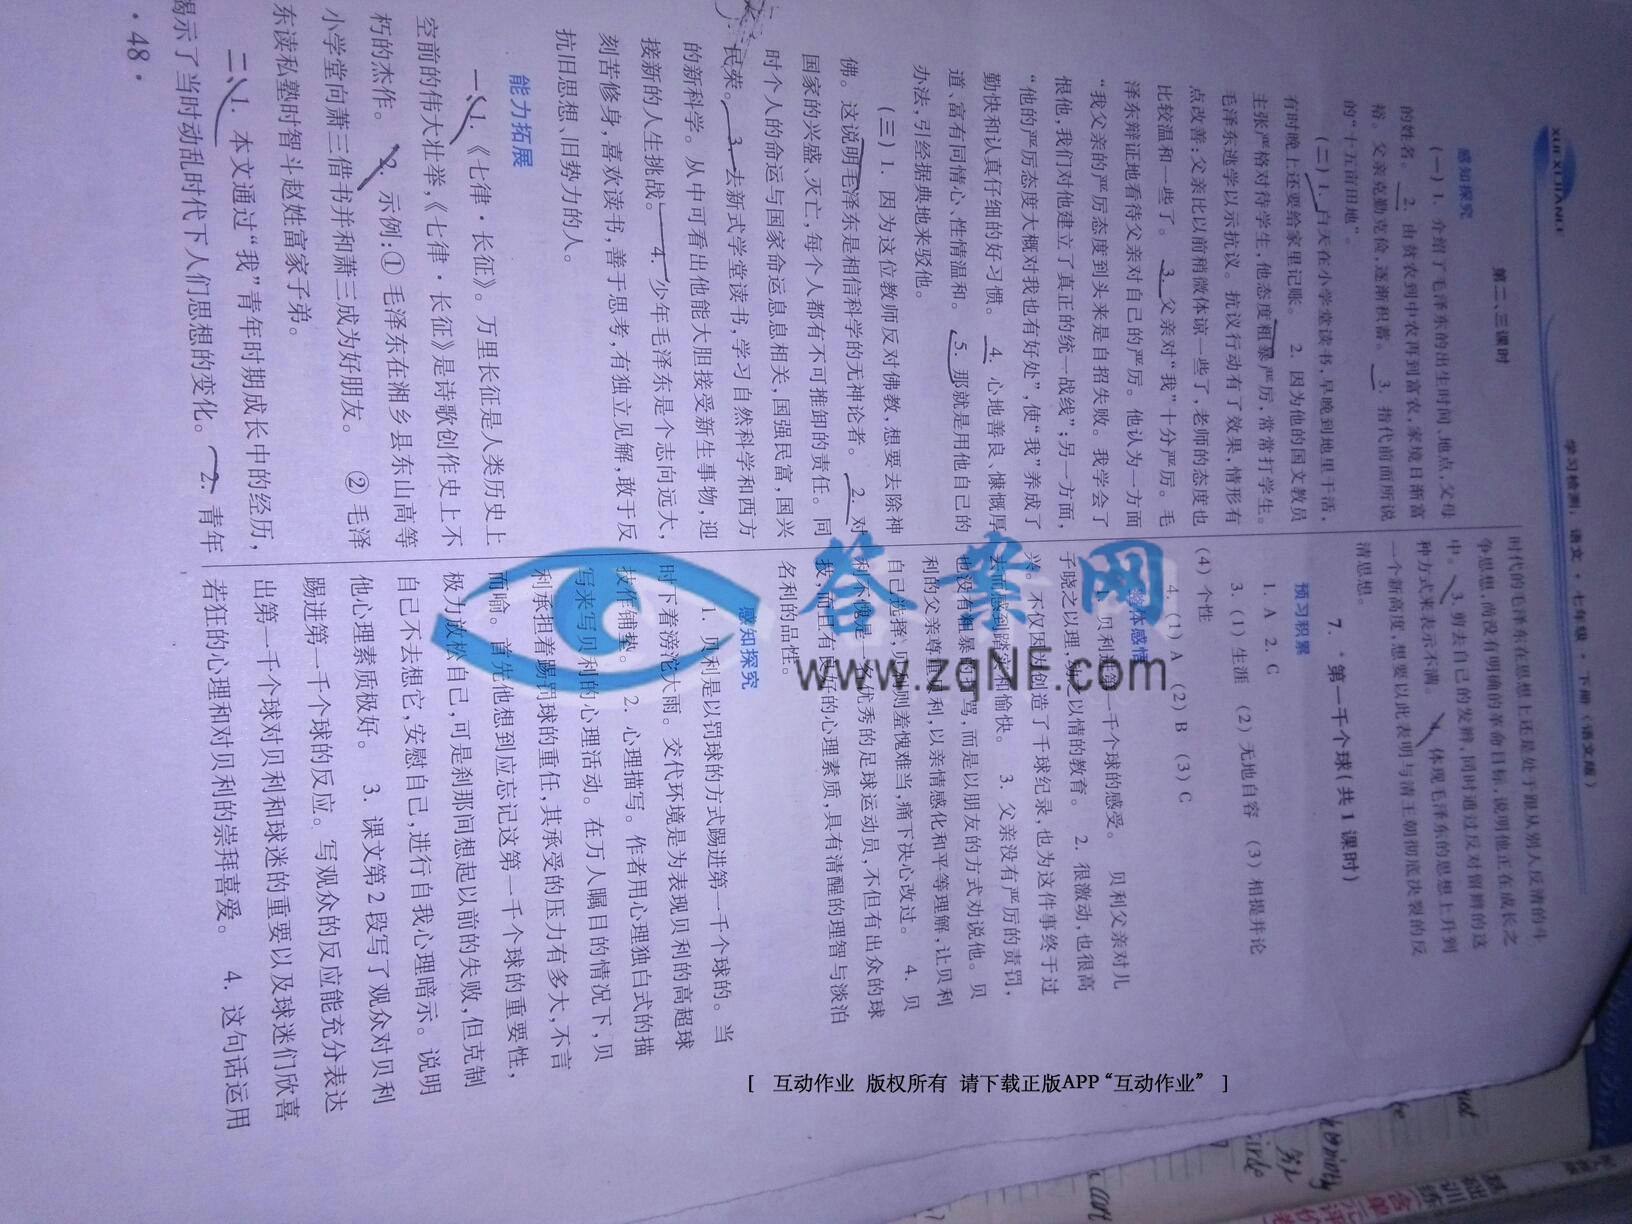 XUE XI JIAN CE
学习检测：语文·七年级·下册（语文版）
第二、三课时
感知探究
（一）1. 介绍了毛泽东的出生时间、地点，父母
的姓名。 2. 由贫农到中农再到富农，家境日渐富
裕。父亲克勤克俭，逐渐积蓄。 3. 指代前面所说
的“十五亩田地”。
（二）1. 白天在小学堂读书，早晚到地里干活，
有时晚上还要给家里记账。 2. 因为他的国文教员
主张严格对待学生，他态度粗暴严厉，常常打学生。
毛泽东逃学以示抗议。抗议行动有了效果，情形有
点改善：父亲比以前稍微体谅一些了，老师的态度也
比较温和一些了。 3. 父亲对“我”十分严厉。毛
泽东辩证地看待父亲对自己的严厉。他认为一方面
“我父亲的严厉态度到头来是自招失败。我学会了
恨他，我们对他建立了真正的统一战线”；另一方面，
“他的严厉态度大概对我也有好处”，使“我”养成了
勤快和认真仔细的好习惯。 4. 心地善良、慷慨厚
道、富有同情心、性情温和。 5. 那就是用他自己的
办法，引经据典地来驳他。
（三）1. 因为这位教师反对佛教，想要去除神
佛。这说明毛泽东是相信科学的无神论者。 2. 对
国家的兴盛、灭亡，每个人都有不可推卸的责任。同
时个人的命运与国家命运息息相关，国强民富，国兴
民荣。 3. 去新式学堂读书，学习自然科学和西方
的新科学。从中可看出他能大胆接受新生事物，迎
接新的人生挑战。 4. 少年毛泽东是个志向远大，
刻苦修身，喜欢读书，善于思考，有独立见解，敢于反
抗旧思想、旧势力的人。
能力拓展
一、1.《七律·长征》。万里长征是人类历史上
空前的伟大壮举，《七律·长征》是诗歌创作史上不
朽的杰作。 2. 示例：① 毛泽东在湘乡县东山高等
小学堂向萧三借书并和萧三成为好朋友。 ② 毛泽
东读私塾时智斗赵姓富家子弟。
二、1. 本文通过“我”青年时期成长中的经历，
揭示了当时动乱时代下人们思想的变化。 2. 青年
·48·
时代的毛泽东在思想上还是处于跟从别人反清的斗
争思想，尚没有明确的革命目标，说明他正在成长之
中。 3. 剪去自己的发辫，同时通过反对留辫的这
种方式来表示不满。 4. 体现毛泽东的思想上升到
一个新高度，想要以此表明与清王朝彻底决裂的反
清思想。
7. *第一千个球（共1课时）
预习积累
1. A 2. C
3.（1）生涯 （2）无地自容 （3）相提并论
（4）个性
4.（1）A （2）B （3）C
体感悟
贝利进第一千个球的感受。 贝利父亲对儿
子晓之以理、以情的教育。 2. 很激动，也很高
兴。不仅因为创造了千球纪录，也为这件事终于过
去而感到踏实和愉快。 3. 父亲没有严厉的责罚，
也没有粗暴的骂，而是以朋友的方式劝说他。贝
利的父亲尊重贝利，以亲情感化和平等理解，让贝利
自己选择，贝利则羞愧难当，痛下决心改过。 4. 贝
利不愧是一名优秀的足球运动员，不但有出众的球
技，而且有良好的心理素质，具有清醒的理智与淡泊
名利的品性。
感知探究
1. 贝利是以罚球的方式踢进第一千个球的。当
时下着滂沱大雨。交代环境是为表现贝利的高超球
技作铺垫。 2. 心理描写。作者用心理独白式的描
写来写贝利的心理活动。在万人瞩目的情况下，贝
利承担着踢罚球的重任，其承受的压力有多大，不言
而喻。首先他想到应忘记这第一千个球的重要性，
极力放松自己，可是刹那间想起以前的失败，但克制
自己不去想它，安慰自己，进行自我心理暗示。说明
他心理素质极好。 3. 课文第2段写了观众对贝利
踢进第一千个球的反应。写观众的反应能充分表达
出第一千个球对贝利和球迷的重要以及球迷们欣喜
若狂的心理和对贝利的崇拜喜爱。 4. 这句话运用
答案网
www.zqNF.com
[ 互动作业 版权所有 请下载正版APP“互动作业” ]